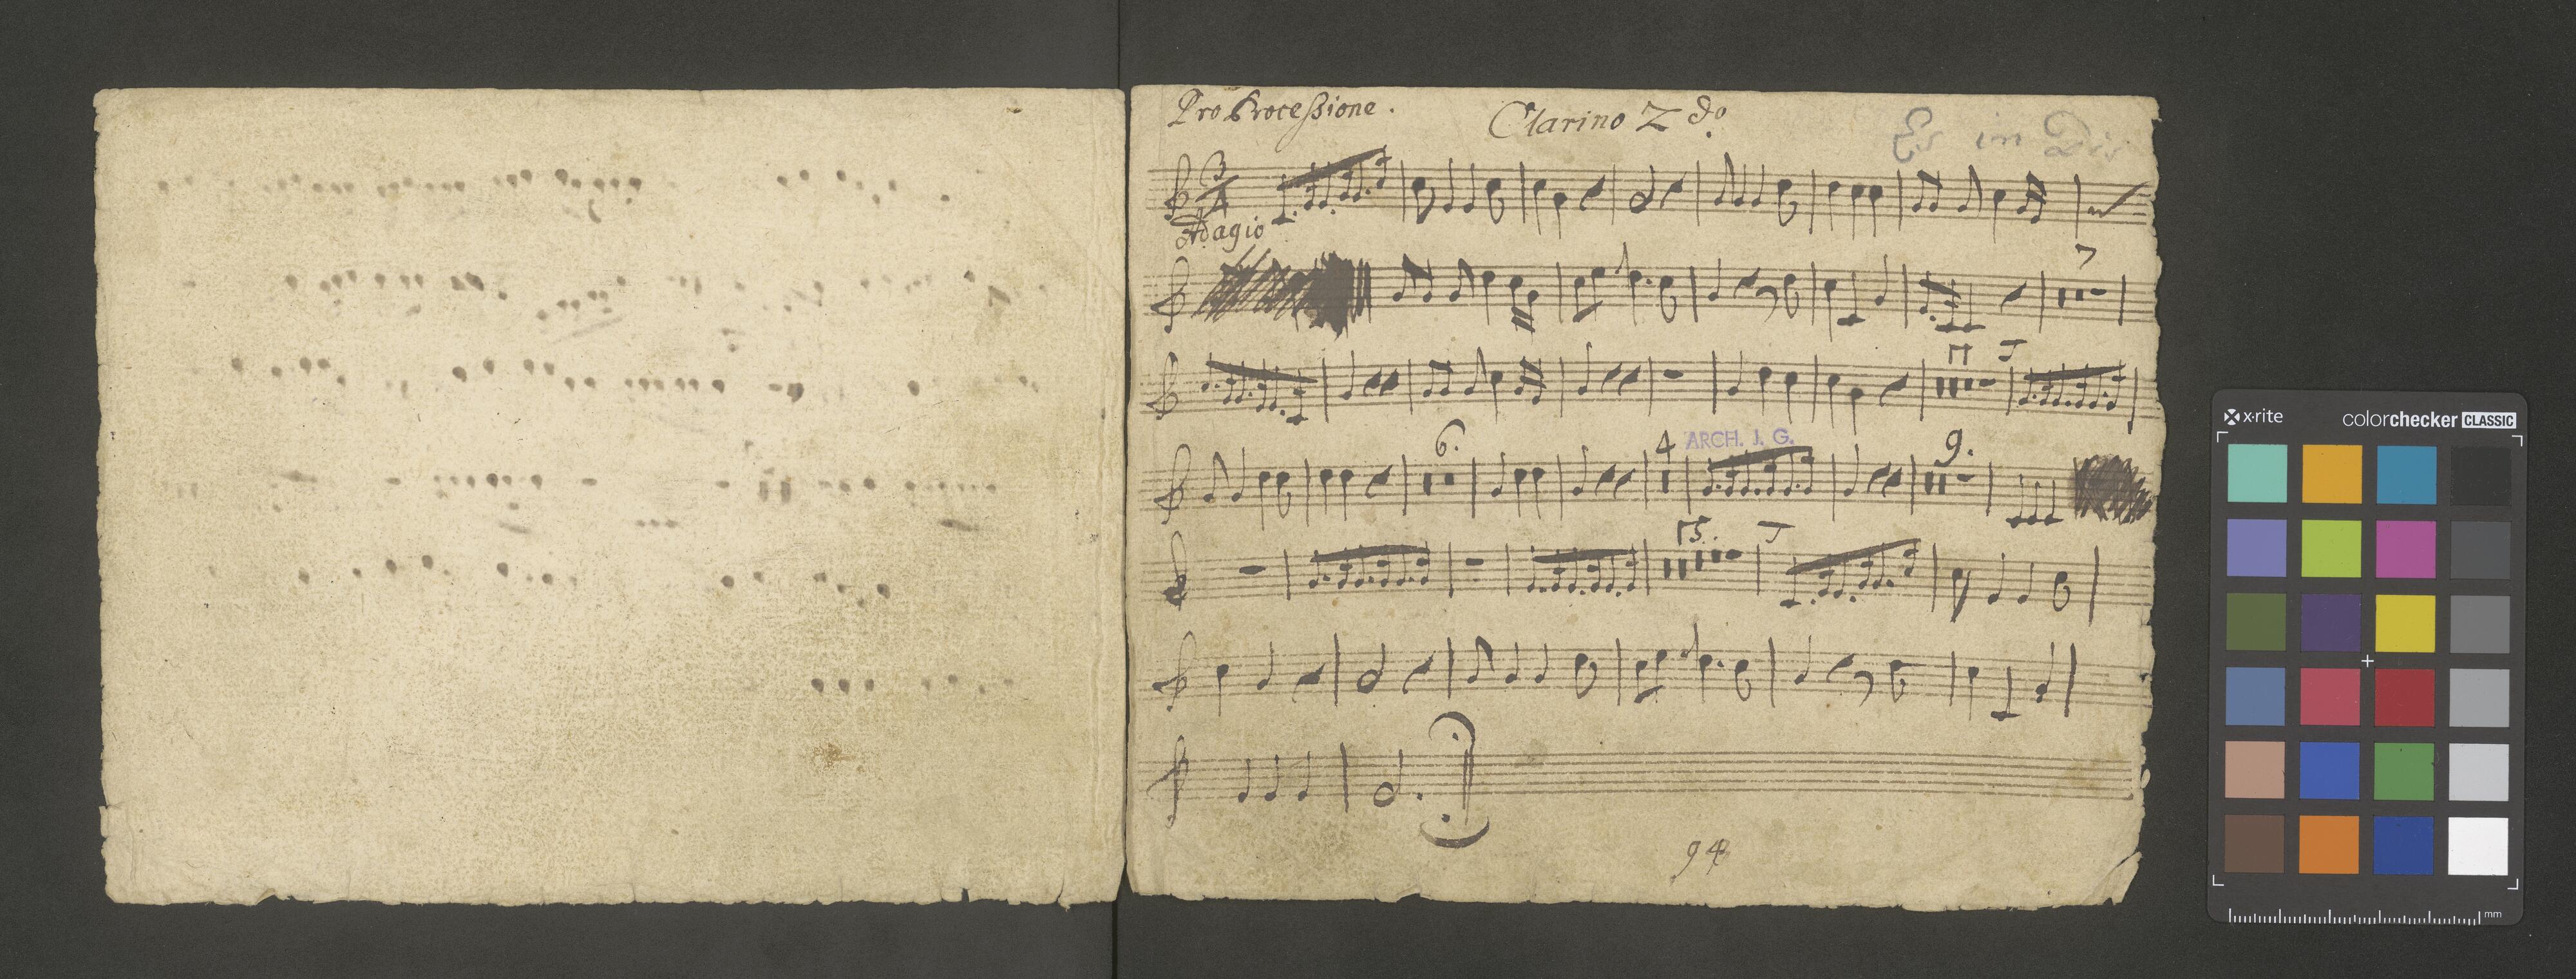 Pro Processione. Clarino 2do
Es in Dis
3/4
Adagio
7
11
6.
4 ARCH. J. G. 9.
15.
94
x·rite colorchecker CLASSIC
mm